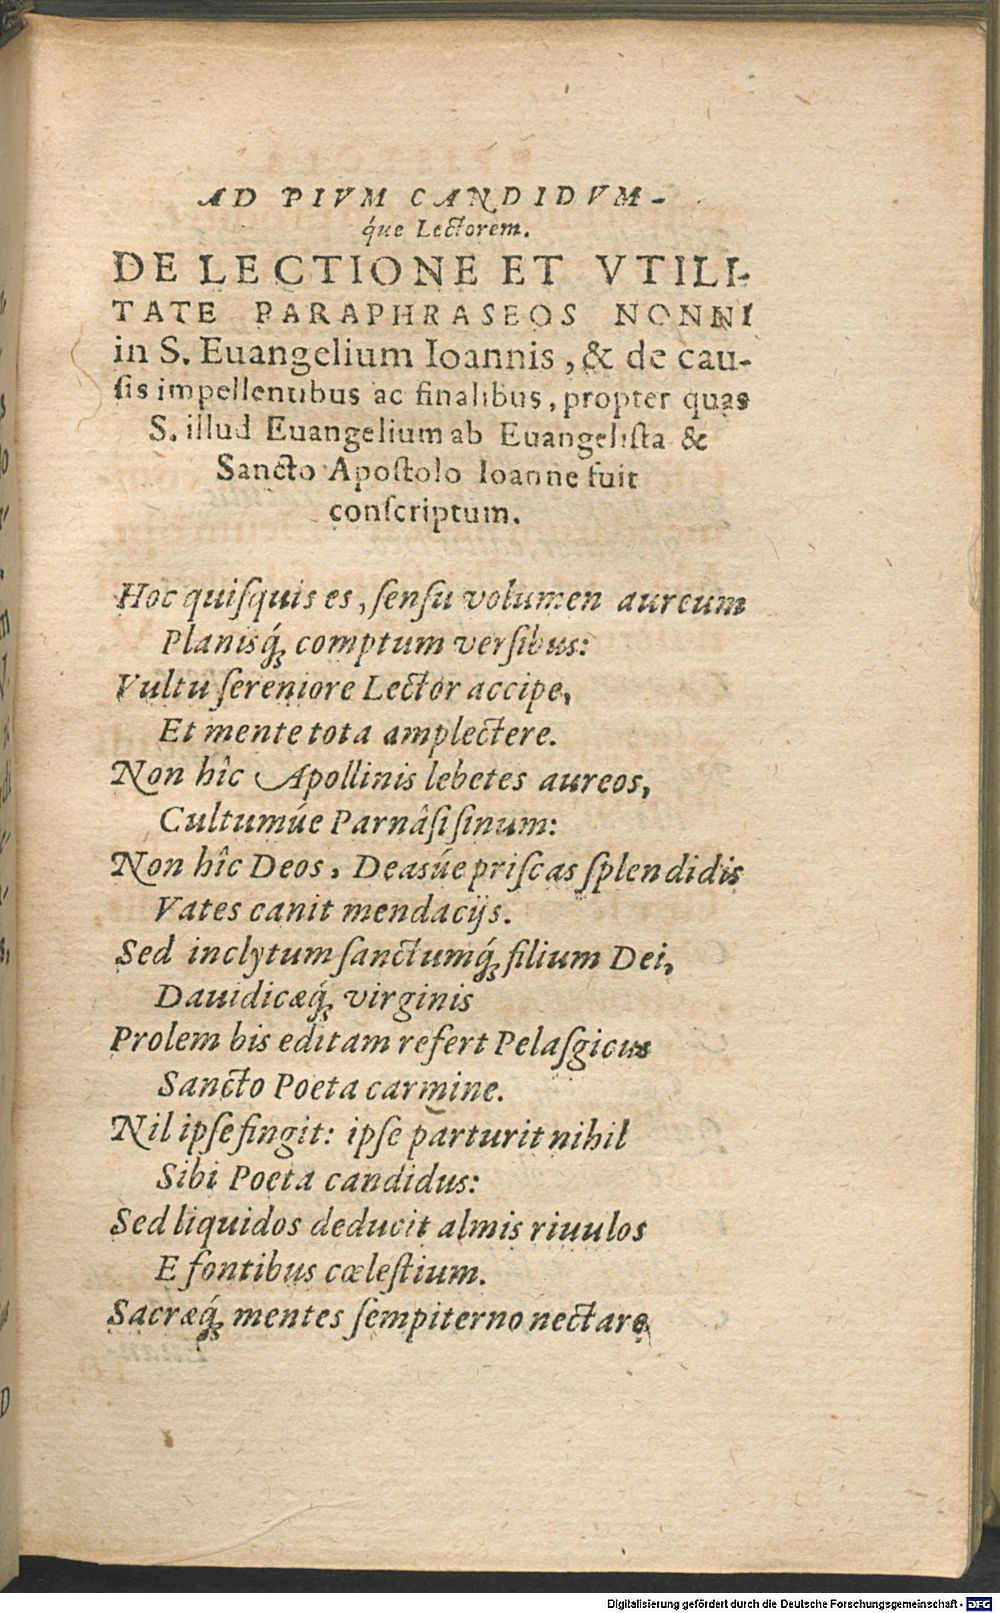 AD PIVM CANDIDVM-
q́ue Lectorem.
DE LECTIONE ET VTILI-
TATE PARAPHRASEOS NONNI
in S. Euangelium Ioannis, & de cau-
ſis impellentibus ac finalibus, propter quas
S. illud Euangelium ab Euangeliſta &
Sancto Apoſtolo Ioanne fuit
conſcriptum.
Hoc quiſquis es, ſenſu volumen aureum
Planisq́ꝫ comptum verſibus:
Vultu ſereniore Lector accipe,
Et mente tota amplectere.
Non hîc Apollinis lebetes aureos,
Cultumúe Parnâſiſinum:
Non hîc Deos, Deasúe priſcas ſplendidis
Vates canit mendacijs.
Sed inclytum ſanctumq́ꝫ filium Dei,
Dauidicæq́ꝫ virginis
Prolem bis editam refert Pelaſgicus
Sancto Poeta carmine.
Nil ipſe fingit: ipſe parturit nihil
Sibi Poeta candidus:
Sed liquidos deducit almis riuulos
E fontibus cœleſtium.
Sacræq́ꝫ mentes ſempiterno nectare
Digitalisierung gefördert durch die Deutsche Forschungsgemeinschaft - DFG